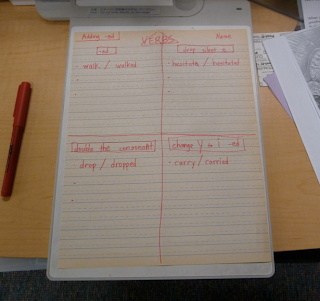 Adding -ed
VERBS
Name
-ed
drop silent e
• walk / walked
• hesitate / hesitated
double the consonant
change y to i -ed
drop / dropped
• carry / carried